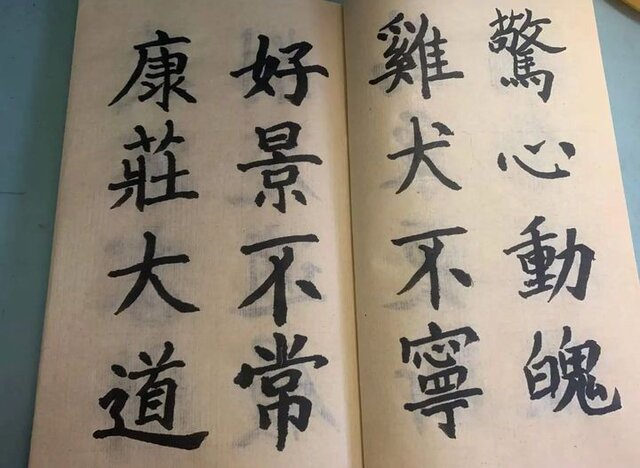 驚心動魄
雞犬不寧
好景不常
康莊大道